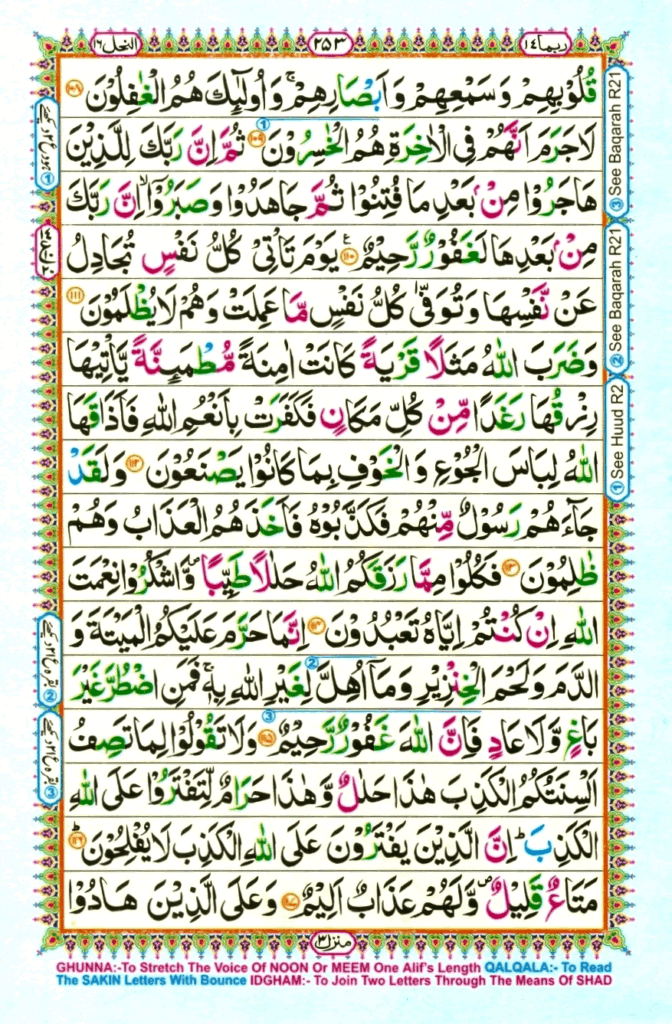 ربما ١٤
٢٥٣
النحل ١٦
قُلُوْبِهِمْ وَسَمْعِهِمْ وَاَبْصَارِهِمْ ۚ وَاُولٰٓئِكَ هُمُ الْغٰفِلُوْنَ ١٠٨
لَا جَرَمَ اَنَّهُمْ فِى الْاٰخِرَةِ هُمُ الْخٰسِرُوْنَ ١٠٩ ثُمَّ اِنَّ رَبَّكَ لِلَّذِيْنَ
هَاجَرُوْا مِنْۢ بَعْدِ مَا فُتِنُوْا ثُمَّ جَاهَدُوْا وَصَبَرُوْۤا ۙ اِنَّ رَبَّكَ
مِنْۢ بَعْدِهَا لَغَفُوْرٌ رَّحِيْمٌ ١١٠ ع يَوْمَ تَاْتِىْ كُلُّ نَفْسٍ تُجَادِلُ
عَنْ نَّفْسِهَا وَتُوَفّٰى كُلُّ نَفْسٍ مَّا عَمِلَتْ وَهُمْ لَا يُظْلَمُوْنَ ١١١
وَضَرَبَ اللّٰهُ مَثَلًا قَرْيَةً كَانَتْ اٰمِنَةً مُّطْمَىِٕنَّةً يَّاْتِيْهَا
رِزْقُهَا رَغَدًا مِّنْ كُلِّ مَكَانٍ فَكَفَرَتْ بِاَنْعُمِ اللّٰهِ فَاَذَاقَهَا
اللّٰهُ لِبَاسَ الْجُوْعِ وَالْخَوْفِ بِمَا كَانُوْا يَصْنَعُوْنَ ١١٢ وَلَقَدْ
جَآءَهُمْ رَسُوْلٌ مِّنْهُمْ فَكَذَّبُوْهُ فَاَخَذَهُمُ الْعَذَابُ وَهُمْ
ظٰلِمُوْنَ ١١٣ فَكُلُوْا مِمَّا رَزَقَكُمُ اللّٰهُ حَلٰلًا طَيِّبًا ۪ وَّاشْكُرُوْا نِعْمَتَ
اللّٰهِ اِنْ كُنْتُمْ اِيَّاهُ تَعْبُدُوْنَ ١١٤ اِنَّمَا حَرَّمَ عَلَيْكُمُ الْمَيْتَةَ وَ
الدَّمَ وَلَحْمَ الْخِنْزِيْرِ وَمَاۤ اُهِلَّ لِغَيْرِ اللّٰهِ بِهٖ ۚ فَمَنِ اضْطُرَّ غَيْرَ
بَاغٍ وَّلَا عَادٍ فَاِنَّ اللّٰهَ غَفُوْرٌ رَّحِيْمٌ ١١٥ وَلَا تَقُوْلُوْا لِمَا تَصِفُ
اَلْسِنَتُكُمُ الْكَذِبَ هٰذَا حَلٰلٌ وَّهٰذَا حَرَامٌ لِّتَفْتَرُوْا عَلَى اللّٰهِ
الْكَذِبَ ؕ اِنَّ الَّذِيْنَ يَفْتَرُوْنَ عَلَى اللّٰهِ الْكَذِبَ لَا يُفْلِحُوْنَ ؕ ١١٦
مَتَاعٌ قَلِيْلٌ ۪ وَّلَهُمْ عَذَابٌ اَلِيْمٌ ١١٧ وَعَلَى الَّذِيْنَ هَادُوْا
منزل ٣
③ See Baqarah R21
② See Baqarah R21
① See Huud R2
GHUNNA:-To Stretch The Voice Of NOON Or MEEM One Alif's Length QALQALA:- To Read
The SAKIN Letters With Bounce IDGHAM:- To Join Two Letters Through The Means Of SHAD